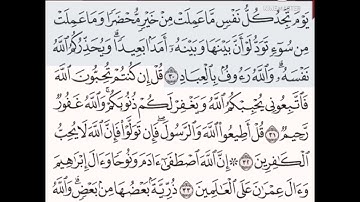 يَوْمَ تَجِدُ كُلُّ نَفْسٍ مَّا عَمِلَتْ مِنْ خَيْرٍ مُّحْضَرًا وَمَا عَمِلَتْ
مِن سُوٓءٍ تَوَدُّ لَوْ أَنَّ بَيْنَهَا وَبَيْنَهُۥٓ أَمَدًۢا بَعِيدًا ۗ وَيُحَذِّرُكُمُ ٱللَّهُ
نَفْسَهُۥ ۗ وَٱللَّهُ رَءُوفٌۢ بِٱلْعِبَادِ ٣٠ قُلْ إِن كُنتُمْ تُحِبُّونَ ٱللَّهَ
فَٱتَّبِعُونِى يُحْبِبْكُمُ ٱللَّهُ وَيَغْفِرْ لَكُمْ ذُنُوبَكُمْ ۗ وَٱللَّهُ غَفُورٌ
رَّحِيمٌ ٣١ قُلْ أَطِيعُوا۟ ٱللَّهَ وَٱلرَّسُولَ ۖ فَإِن تَوَلَّوْا۟ فَإِنَّ ٱللَّهَ لَا يُحِبُّ
ٱلْكَٰفِرِينَ ٣٢ ۞ إِنَّ ٱللَّهَ ٱصْطَفَىٰٓ ءَادَمَ وَنُوحًا وَءَالَ إِبْرَٰهِيمَ
وَءَالَ عِمْرَٰنَ عَلَى ٱلْعَٰلَمِينَ ٣٣ ذُرِّيَّةًۢ بَعْضُهَا مِنۢ بَعْضٍ ۗ وَٱللَّهُ